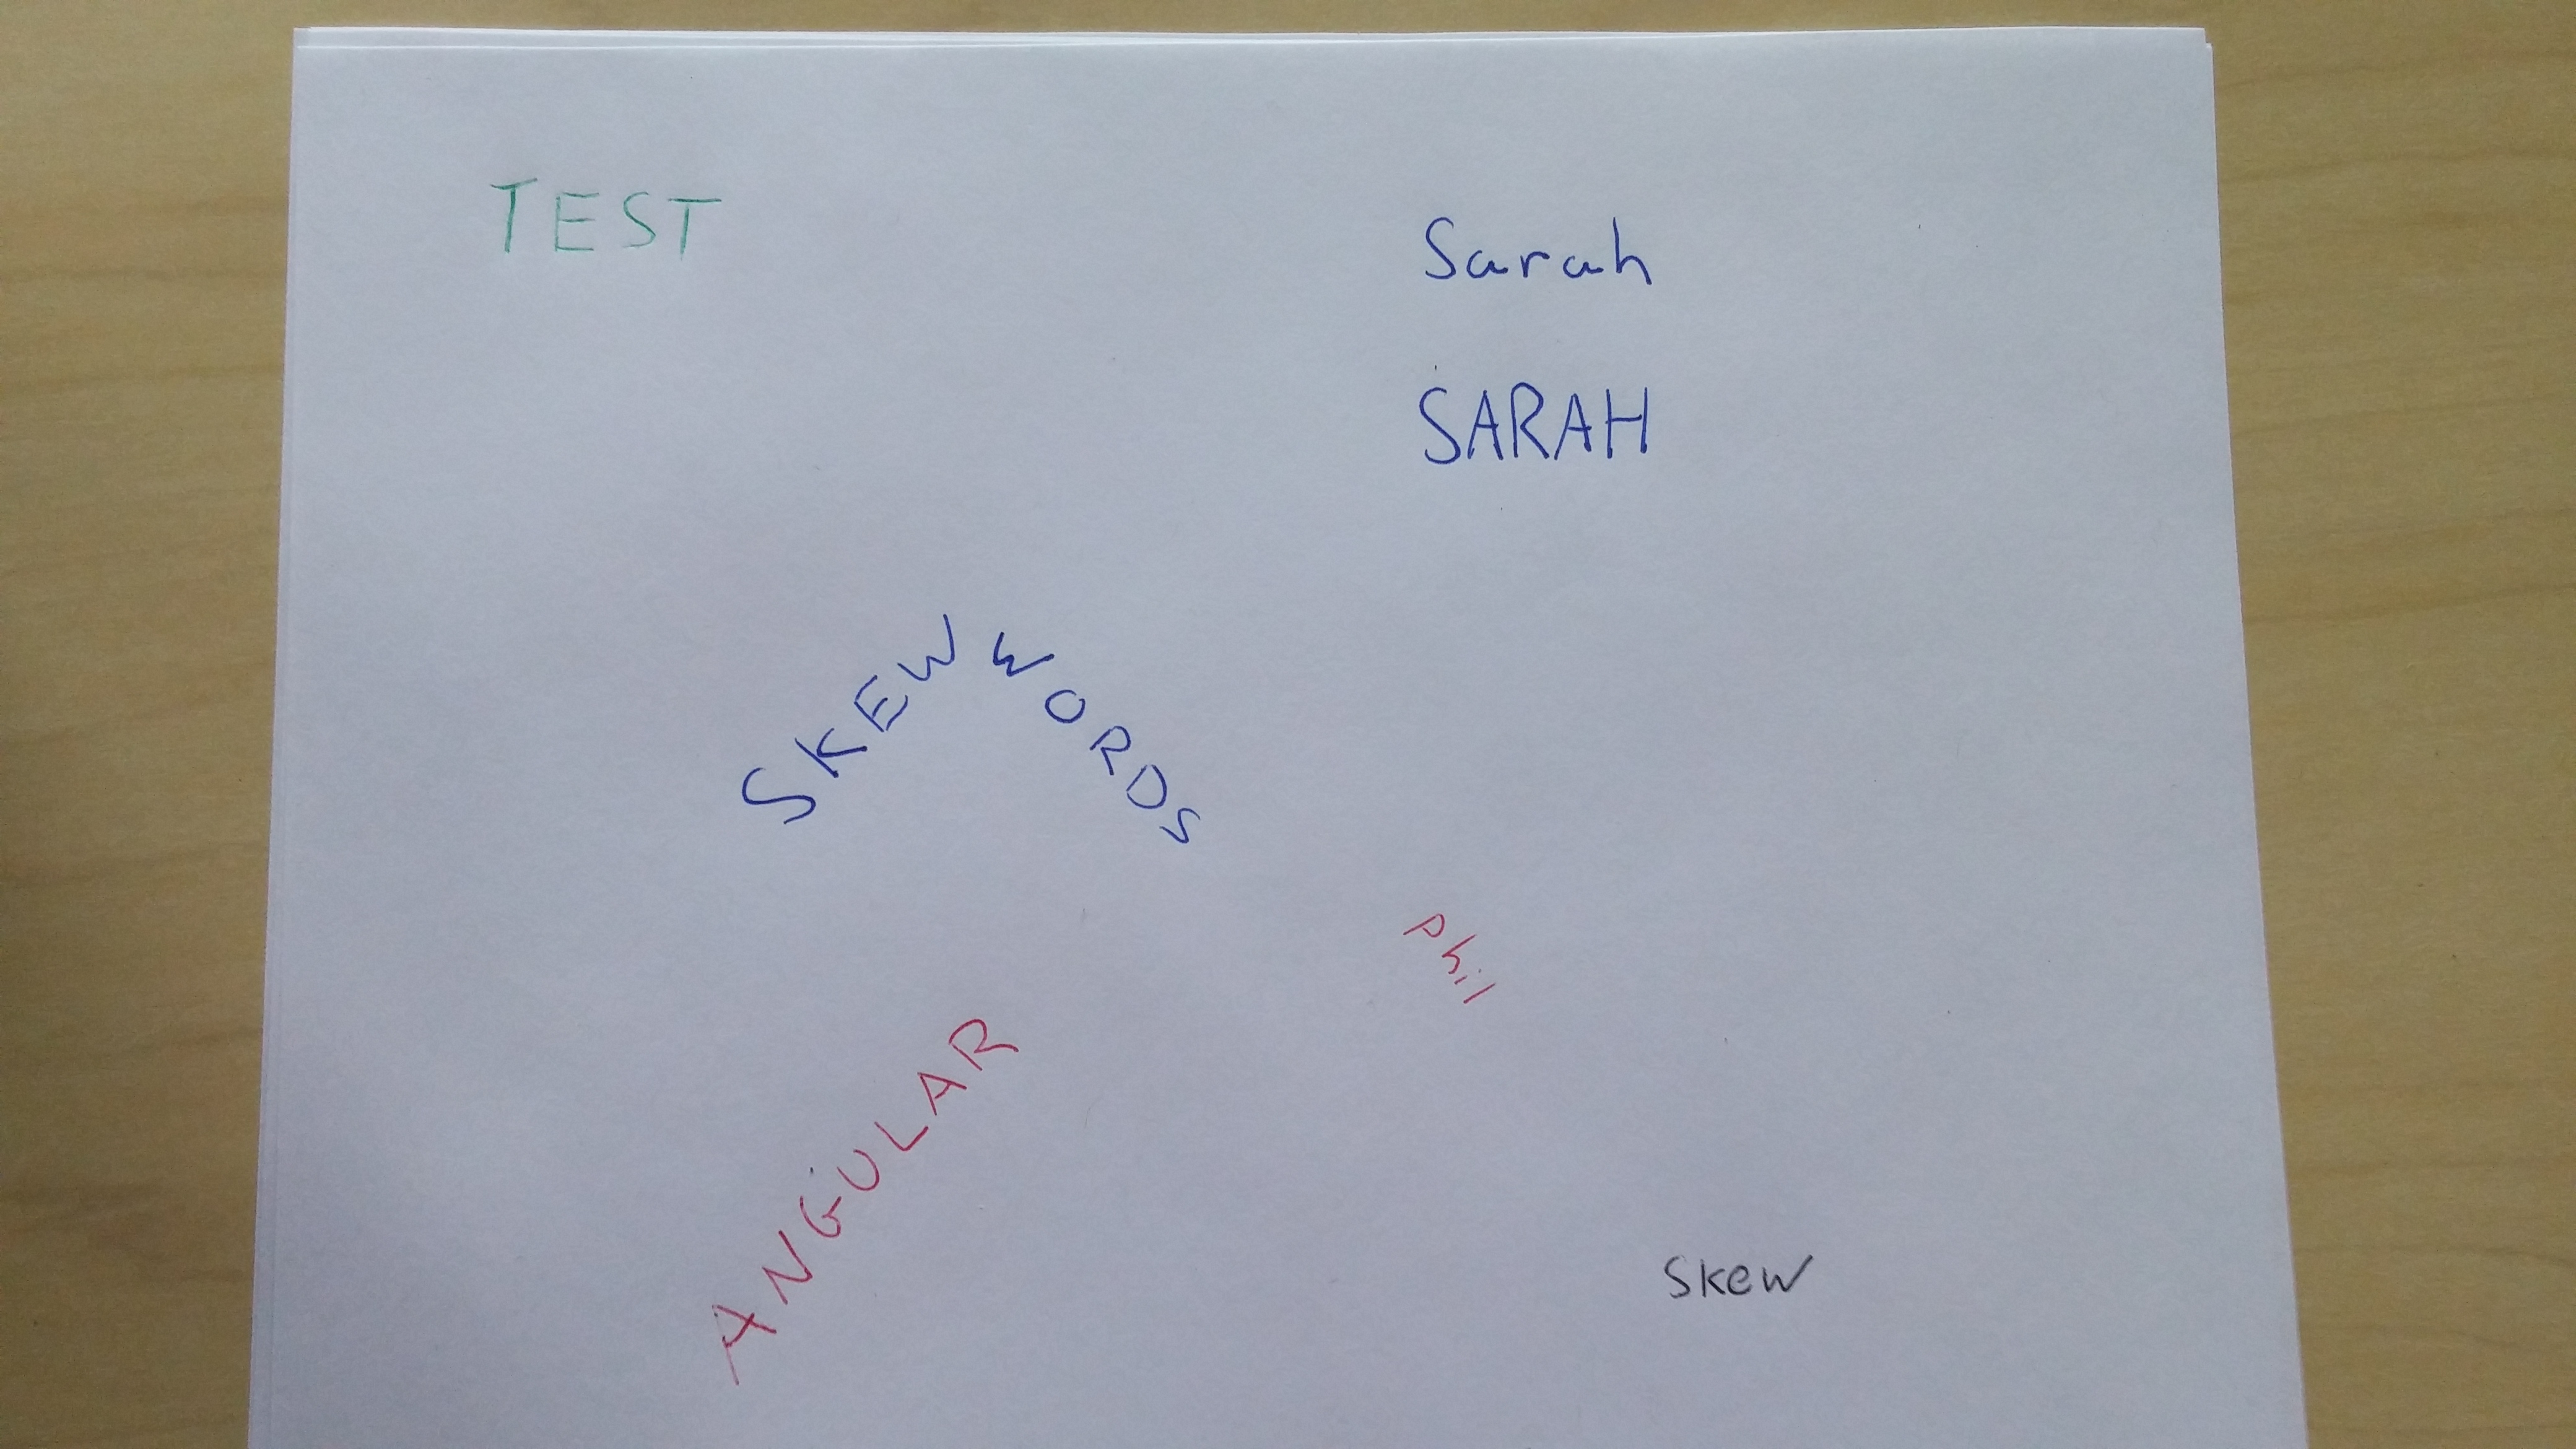 TEST
Sarah
SARAH
SKEW
WORDS
Phil
ANGULAR
skew